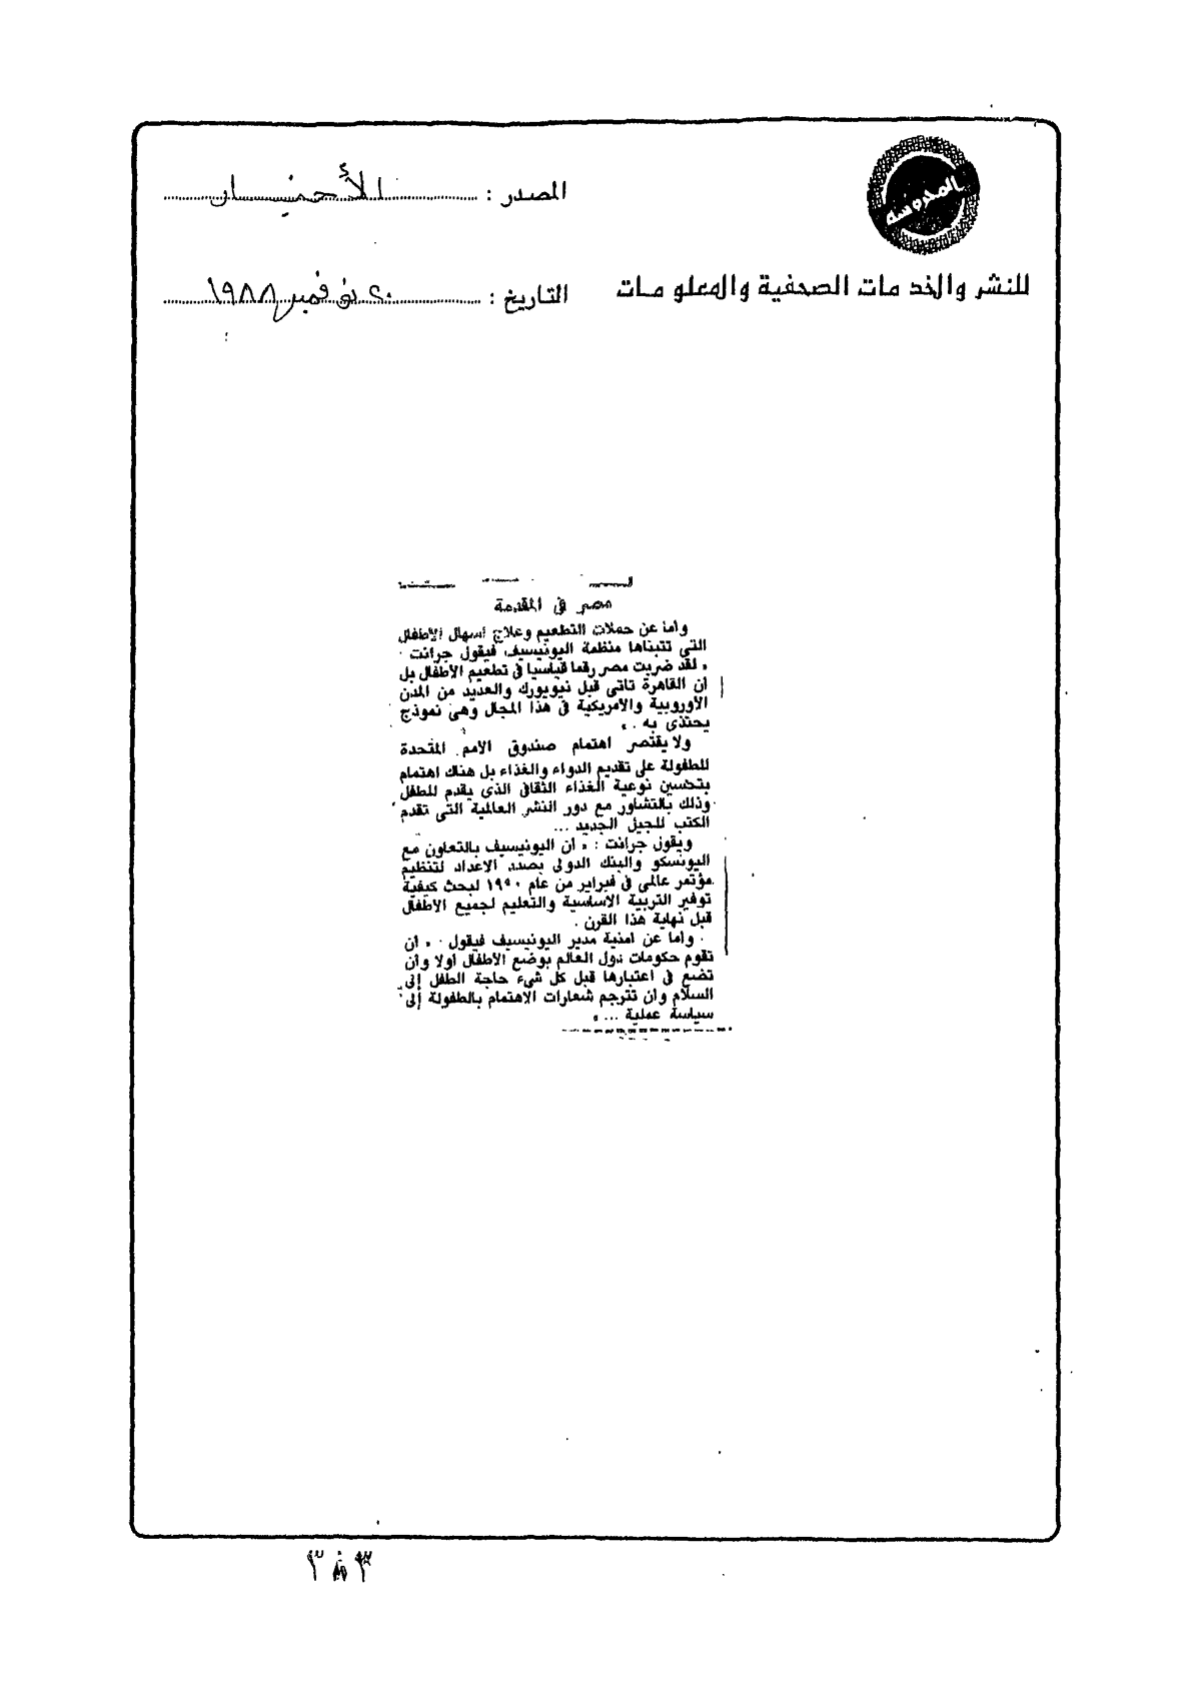 المحروسة
المصدر : الأخبار
للنشر والخدمات الصحفية والمعلومات
التاريخ : ٢٠ نوفمبر ١٩٨٨
مصر في المقدمة
وأما عن حملات التطعيم وعلاج أسهال الأطفال
التي تتبناها منظمة اليونيسيف فيقول جرانت
« لقد ضربت مصر رقما قياسيا في تطعيم الأطفال بل
أن القاهرة تأتي قبل نيويورك والعديد من المدن
الأوروبية والأمريكية في هذا المجال وهي نموذج
يحتذى به . »
ولا يقتصر اهتمام صندوق الأمم المتحدة
للطفولة على تقديم الدواء والغذاء بل هناك اهتمام
بتحسين نوعية الغذاء الثقافي الذي يقدم للطفل
وذلك بالتشاور مع دور النشر العالمية التي تقدم
الكتب للجيل الجديد ...
ويقول جرانت : « أن اليونيسيف بالتعاون مع
اليونسكو والبنك الدولى بصدد الاعداد لتنظيم
مؤتمر عالمى في فبراير من عام ١٩٩٠ لبحث كيفية
توفير التربية الأساسية والتعليم لجميع الأطفال
قبل نهاية هذا القرن .
وأما عن أمنية مدير اليونيسيف فيقول . « أن
تقوم حكومات دول العالم بوضع الأطفال أولا وأن
تضع في اعتبارها قبل كل شيء حاجة الطفل إلى
السلام وأن تترجم شعارات الاهتمام بالطفولة إلى
سياسة عملية ... »